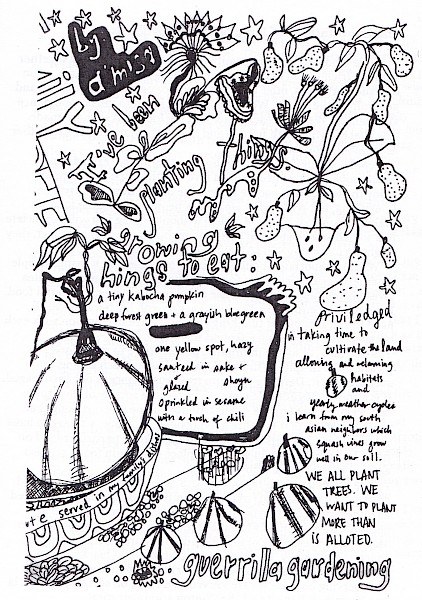 by
d'misa
i've been
planting
things
growing
things to eat:
a tiny kabocha pumpkin
deep forest green + a grayish bluegreen
one yellow spot, hazy
sauteed in sake +
glazed shoyu
sprinkled in sesame
with a torch of chili
served in my family's dishes
priviledged
in taking time to
cultivate the land
allowing and welcoming
habitats
and
yearly weather cycles
i learn from my south
asian neighbors which
squash vines grow
well in our soil.
WE ALL PLANT
TREES. WE
WANT TO PLANT
MORE THAN
IS ALLOTED.
guerrilla gardening